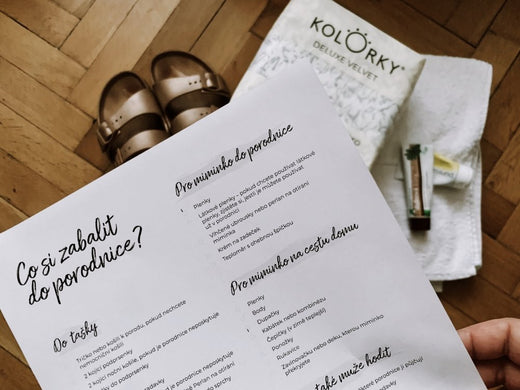 KOLORKY
DELUXE VELVET
Co si zabalit
do porodnice?
Do tašky
Tričko nebo košili k porodu, pokud nechcete
nemocniční košili
2 kojicí podprsenky
2 kojicí noční košile, pokud je porodnice neposkytuje
Pro miminko do porodnice
Plenky
Látkové plenky - pokud chcete používat látkové
plenky, zjistěte si, jestli je můžete používat
už v porodnici
Vlhčené ubrousky nebo perlan na otírání
miminka
Krém na zadeček
Teploměr s ohebnou špičkou
Pro miminko na cestu domu
Plenky
Body
Dupačky
Kabátek nebo kombinézu
Čepičky (v zimě teplejší)
Ponožky
Rukavice
Zavinovačku nebo deku, kterou miminko
přikryjete
také může hodit